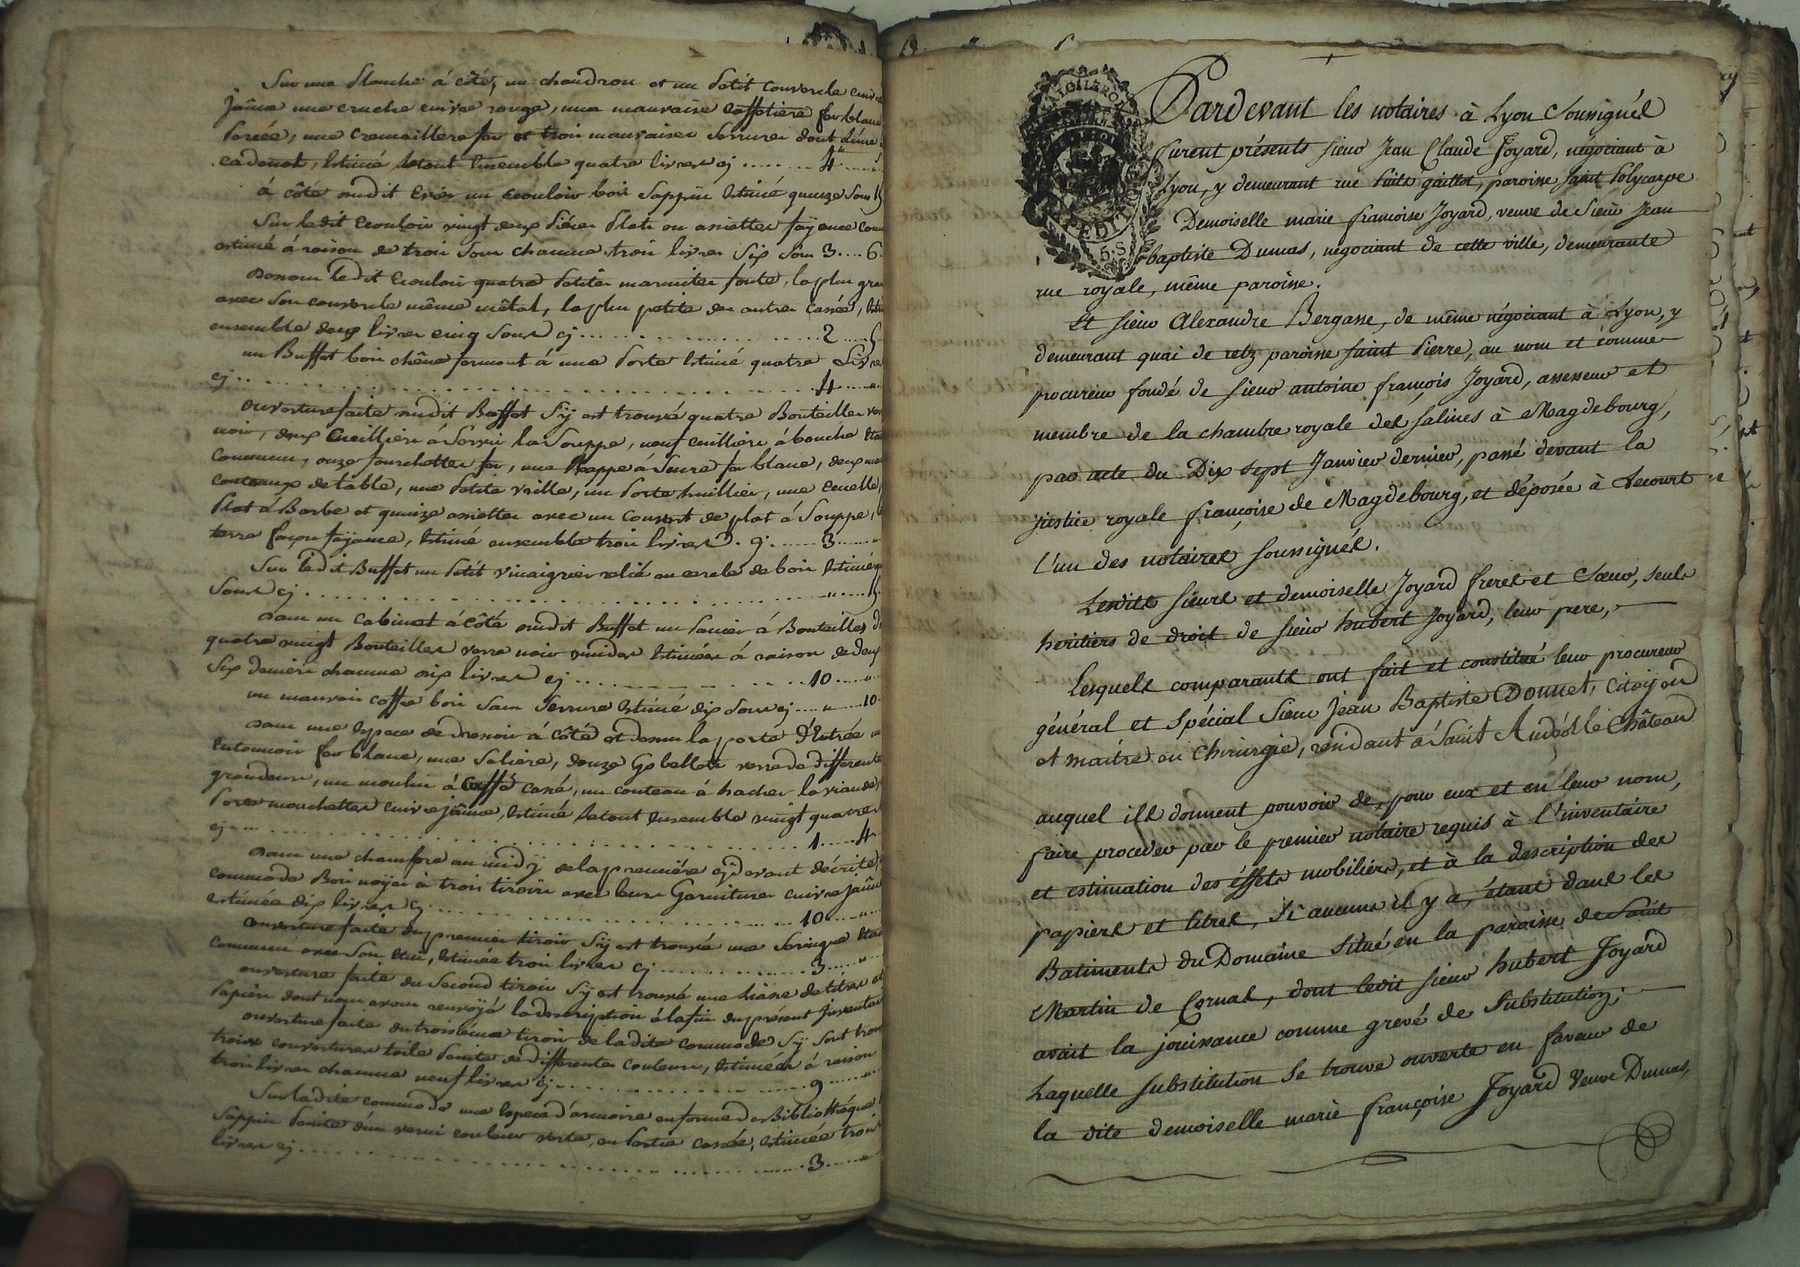 Sur une Planche à côté, un chaudron et un Petit couvercle cuivre
jaûne une cruche cuivre rouge, une mauvaise Caffetière fer blanc
Percée, une cremaillere fer et trois mauvaises Serrures dont d'une
cadenat, Estimé letout Ensemble quatre livres cj ..... 4 ..... "
à côte audit Evier un Ecouloir bois Sappin Estimé quinze Sous 15
Sur ledit Ecouloir vingt deux Pièces Plats ou assiettes fayence
estimé à raison de trois Sous chacune trois livres Six Sous 3 .... 6
Dessous ledit Ecouloir quatre Petites marmites fonte, la plus
avec Son couvercle même métal, la plus petite des autres Cassée,
ensemble deux livres cinq Sous cj ..... 2 ... 5
un Buffet bois chêne fermant à une Porte Estimé quatre Livres
cj ..... 4 ..... "
ouverture faite audit Buffet S'ÿ est trouvé quatre Bouteilles
noir, deux Cueilliers à Servir la Souppe, neuf cuillieres à bouche
Commun, onze fourchettes fer, une Rappe à Sucre fer blanc, deux
couteaux de table, une Petite vrille, un Porte huillier, une Ecuelle,
Plat à Barbe et quinze assiettes avec un Couvert de plat à Souppe,
terre façon fayance, Estimé ensemble trois livres cj ..... 3 ..... "
Sur ledit Buffet un Petit vinaigrier relié en cercle de bois Estimé
Sous cj ..... " ..... 15
Dans un Cabinet à Côté audit Buffet un Panier à Bouteilles
quatre vingt Bouteilles verre noir vuides Estimées à raison de deux
Six deniers chacune dix livres cj ..... 10 ..... "
un mauvais coffre bois Sans Serrure Estimé dix Sous cj .... " .... 10
Dans une Espece de dressoir à côté et dessus la porte d'Entrée
Entonnoir fer blanc, une Saliere, douze Gobellets verre de differente
grandeur, un moulin à Caffé cassé, un couteau à hacher la viande,
Porte mouchettes cuivre jaûne, Estimé letout Ensemble vingt quatre
cj ..... 1 ..... 4
Dans une chambre au midÿ de la première cj devant décrite,
commode Bois noÿer à trois tiroirs avec leurs Garnitures Cuivre jaûne
estimée dix livres cj ..... 10 ..... "
ouverture faite du premier tiroir S'ÿ est trouvée une Seringue
commun avec Son Etui, Estimée trois livres cj ..... 3 ..... "
ouverture faite du Second tiroir S'ÿ est trouvé une Liasse de titres et
Papiers dont nous avons renvoÿé la description à la fin du présent Inventaire
ouverture faite du troisième tiroir de la dite commode S'ÿ Sont trouvé
trois couvertures toile Peinte de differentes couleurs, Estimées à raison
trois livres chacune neuf livres cj ..... 9 ..... "
Sur ladite commode une Espece d'armoire en forme de Bibliothéque
Sappin Peinte d'un verni couleur verte, en Partie Cassée, Estimée trois
livres cj ..... 3 ..... "
EXPEDITIONS
5 S
Pardevant les notaires à Lyon Soussignés
furent présents sieur Jean Claude Joyard, négociant à
Lyon, y demeurant rue Puits gaillot, paroisse saint Polycarpe
Demoiselle marie françoise Joyard, veuve de Sieur Jean
baptiste Dumas, négociant de cette ville, demeurante
rue royale, même paroisse.
Et sieur Alexandre Bergasse, de même négociant à Lyon, y
demeurant quai de retz paroisse saint Pierre, au nom et comme
procureur fondé de sieur antoine françois Joyard, assesseur et
membre de la chambre royale des salines à Magdebourg,
par acte du Dix sept Janvier dernier, passé devant la
justice royale françoise de Magdebourg, et déposée à Lecourt
l'un des notaires soussignés.
Lesdits sieurs et demoiselle Joyard freres et Sœur, seuls
héritiers de droit de sieur hubert Joyard, leur pere,
Lesquels comparants ont fait et constitué leur procureur
général et spécial Sieur Jean Baptiste Donnet, Citoÿen
et maître en Chirurgie, résidant à Saint Andéol le Château
auquel ils donnent pouvoir de, pour eux et en leur nom,
faire proceder par le premier notaire requis à l'inventaire
et estimation des éffets mobiliers, et à la description des
papiers et titres, si aucuns il y a, étant dans les
Batiments du Domaine situé en la paroisse de Saint
Martin de Cornas, dont ledit sieur hubert Joyard
avait la jouissance comme grevé de Substitution;
Laquelle substitution se trouve ouverte en faveur de
la dite demoiselle marie françoise Joyard Veuve Dumas,